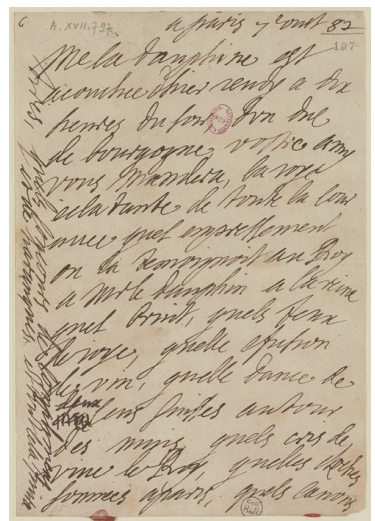 6
A. XVII. 797.
a paris 7 aoust 82
107.
Me la dauphine est
acouchee hier rendy a dix
heures du soir d'un duc
de bourgogne vostre amy
vous mandera, la joye
eclatante de toute la cour
avec quel empressement
on la temoignoit au Roy
a Mr le dauphin a la reine
quel bruit, quels feux
de joye, quelle efution
de vin, quelle dance de
deux cens suisses autour
des muys, quels cris de
vive le Roy, quelles cloches
sonnees a paris, quels canons
tires, quels concours de complimens
et de harangues, et tout cela finira